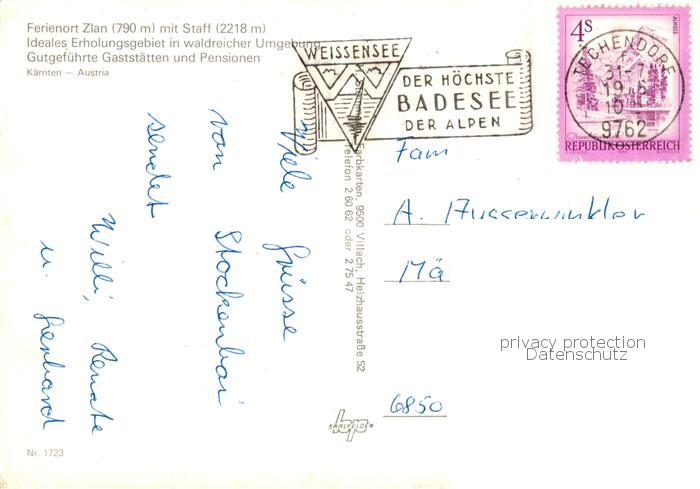 Ferienort Zlan (790 m) mit Staff (2218 m)
Ideales Erholungsgebiet in waldreicher Umgebung
Gutgeführte Gaststätten und Pensionen
Kärnten — Austria
WEISSENSEE
DER HÖCHSTE
BADESEE
DER ALPEN
4s
TECHENDORF
31-7
19
10
9762
REPUBLIK ÖSTERREICH
Viele Grüsse
von Stockenboi
sendet
Willi, Renate
u. Gerhard
Farbkarten, 9500 Villach, Heizhausstraße 52
Telefon 2 60 62 oder 2 75 47
Fam
A.
Mä
6850
privacy protection
Datenschutz
SAALFELDEN
Nr. 1723